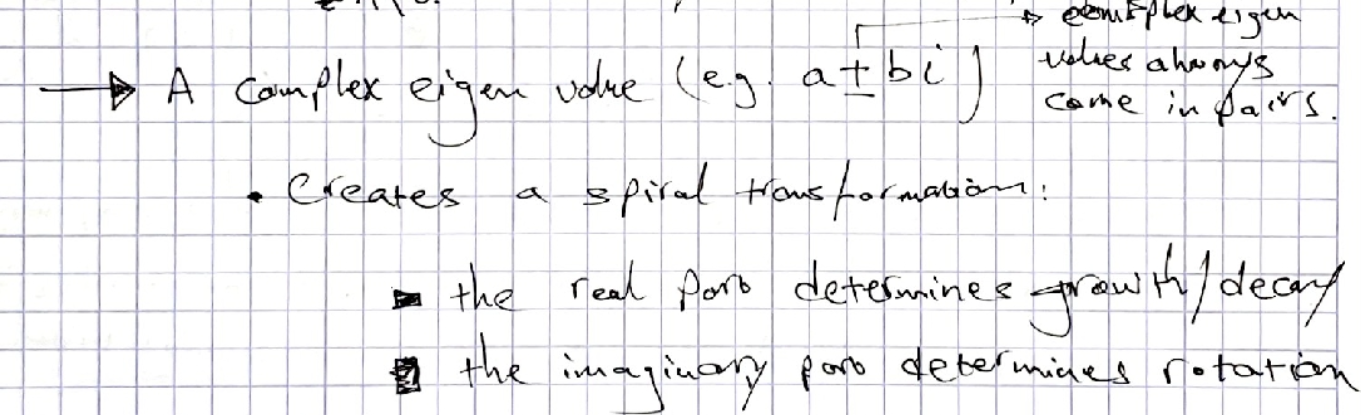 → A complex eigen value (e.g. a ± bi)
→ complex eigen
values always
come in pairs.
• Creates a spiral transformation:
the real part determines growth/decay
the imaginary part determines rotation